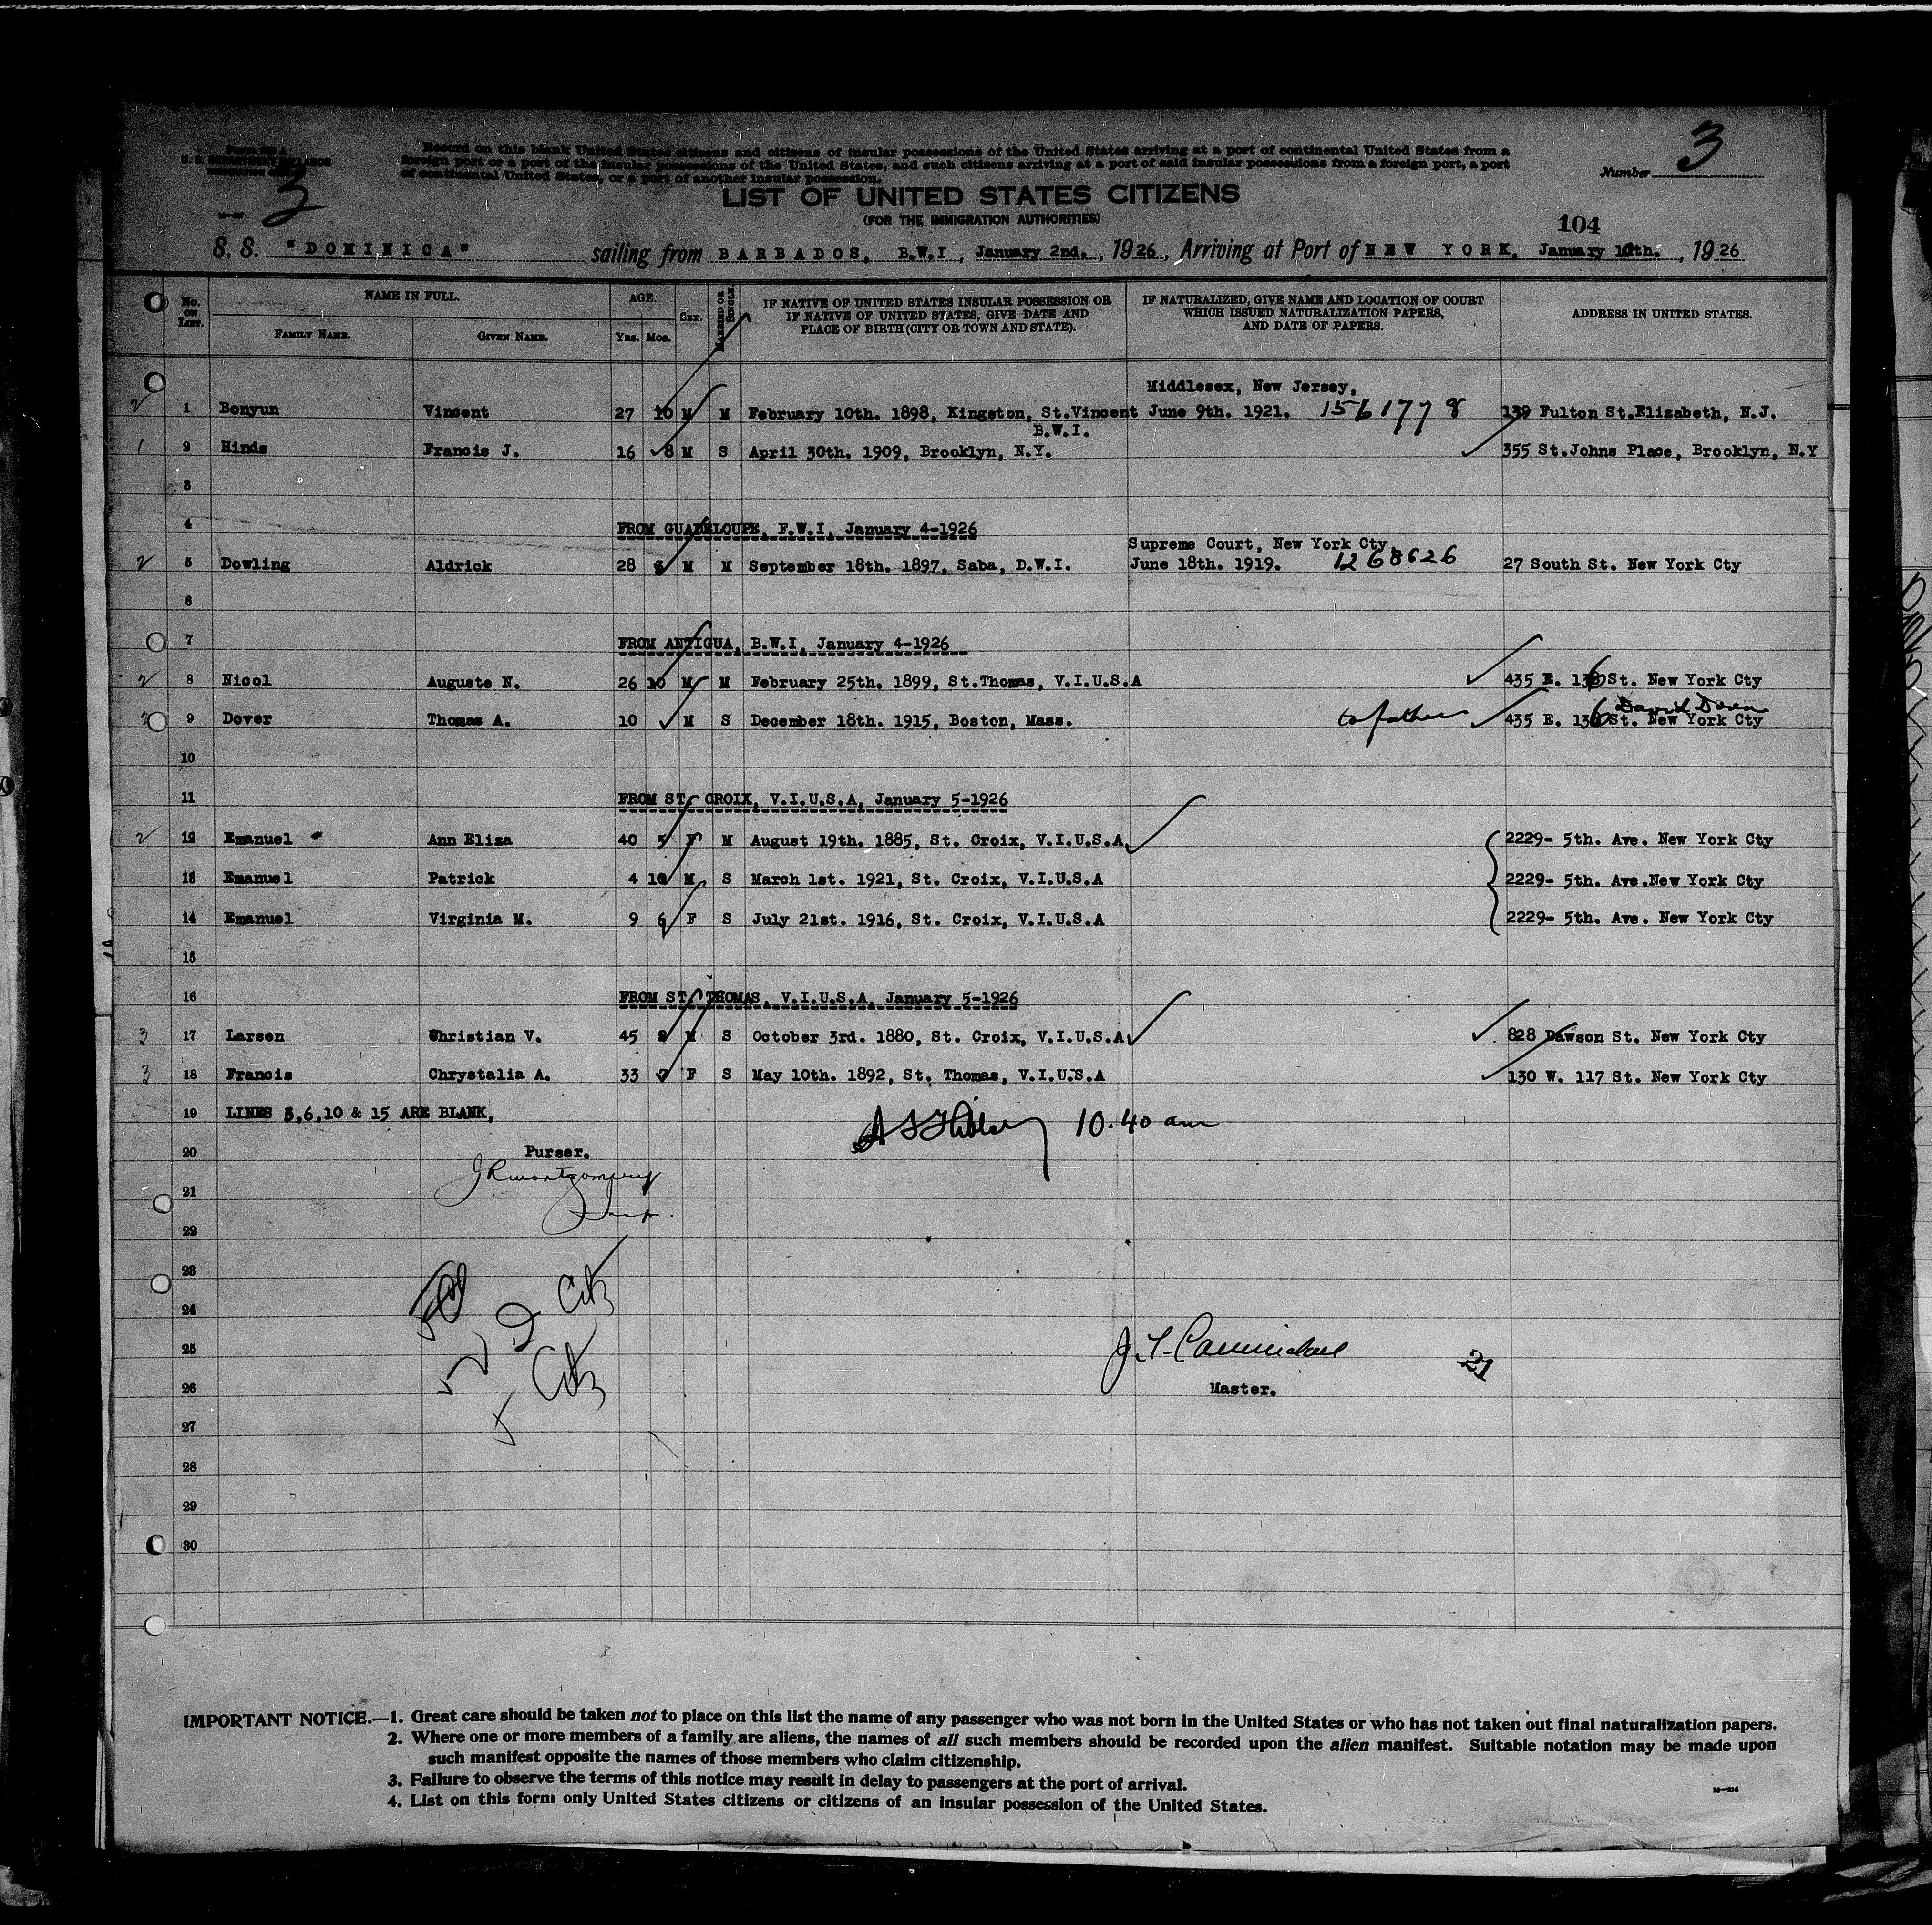 Record on this blank United States citizens and citizens of insular possessions of the United States arriving at a port of continental United States from a
U. S. DEPARTMENT OF LABOR
foreign port or a port of the insular possessions of the United States, and such citizens arriving at a port of said insular possessions from a foreign port, a port
of continental United States, or a port of another insular possession.
Number 3
3
LIST OF UNITED STATES CITIZENS
(FOR THE IMMIGRATION AUTHORITIES)
104
S. S. "DOMINICA" sailing from BARBADOS, B.W.I, January 2nd. , 1926, Arriving at Port of NEW YORK, January 10th. , 1926
No. ON LIST. NAME IN FULL. AGE. SEX. MARRIED OR SINGLE. IF NATIVE OF UNITED STATES INSULAR POSSESSION OR IF NATIVE OF UNITED STATES, GIVE DATE AND PLACE OF BIRTH (CITY OR TOWN AND STATE). IF NATURALIZED, GIVE NAME AND LOCATION OF COURT WHICH ISSUED NATURALIZATION PAPERS, AND DATE OF PAPERS. ADDRESS IN UNITED STATES.
FAMILY NAME. GIVEN NAME. YRS. MOS.
Middlesex, New Jersey,
2 1 Bonyun Vincent 27 10 M M February 10th. 1898, Kingston, St.Vincent June 9th. 1921. 1561778 139 Fulton St.Elizabeth, N.J.
B.W.I.
1 2 Hinds Francis J. 16 8 M S April 30th. 1909, Brooklyn, N.Y. 355 St.Johns Place, Brooklyn, N.Y
3
4 FROM GUADELOUPE, F.W.I, January 4-1926
Supreme Court, New York Cty
2 5 Dowling Aldrick 28 3 M M September 18th. 1897, Saba, D.W.I. June 18th. 1919. 1268626 27 South St. New York Cty
6
7 FROM ANTIGUA, B.W.I, January 4-1926
2 8 Nicol Auguste N. 26 10 M M February 25th. 1899, St.Thomas, V.I.U.S.A 435 E. 136 St. New York Cty
David Dover
2 9 Dover Thomas A. 10 M S December 18th. 1915, Boston, Mass. to father 435 E. 136 St. New York Cty
10
11 FROM ST. CROIX, V.I.U.S.A, January 5-1926
2 12 Emanuel Ann Eliza 40 5 F M August 19th. 1885, St. Croix, V.I.U.S.A 2229- 5th. Ave. New York Cty
13 Emanuel Patrick 4 10 M S March 1st. 1921, St. Croix, V.I.U.S.A 2229- 5th. Ave.New York Cty
14 Emanuel Virginia M. 9 6 F S July 21st. 1916, St. Croix, V.I.U.S.A 2229- 5th. Ave. New York Cty
15
16 FROM ST. THOMAS, V.I.U.S.A, January 5-1926
3 17 Larsen Christian V. 45 2 M S October 3rd. 1880, St. Croix, V.I.U.S.A 828 Dawson St. New York Cty
3 18 Francis Chrystalia A. 33 7 F S May 10th. 1892, St. Thomas, V.I.U.S.A 130 W. 117 St. New York Cty
19 LINES 3,6,10 & 15 ARE BLANK,
10.40 am
20 Purser.
JRMontgomery
21
Insp.
22
23
Citz
24
2
25 Citz
J. T. Carmichael
21
26 Master.
27
28
29
30
IMPORTANT NOTICE.—1. Great care should be taken not to place on this list the name of any passenger who was not born in the United States or who has not taken out final naturalization papers.
2. Where one or more members of a family are aliens, the names of all such members should be recorded upon the alien manifest. Suitable notation may be made upon
such manifest opposite the names of those members who claim citizenship.
3. Failure to observe the terms of this notice may result in delay to passengers at the port of arrival.
4. List on this form only United States citizens or citizens of an insular possession of the United States.